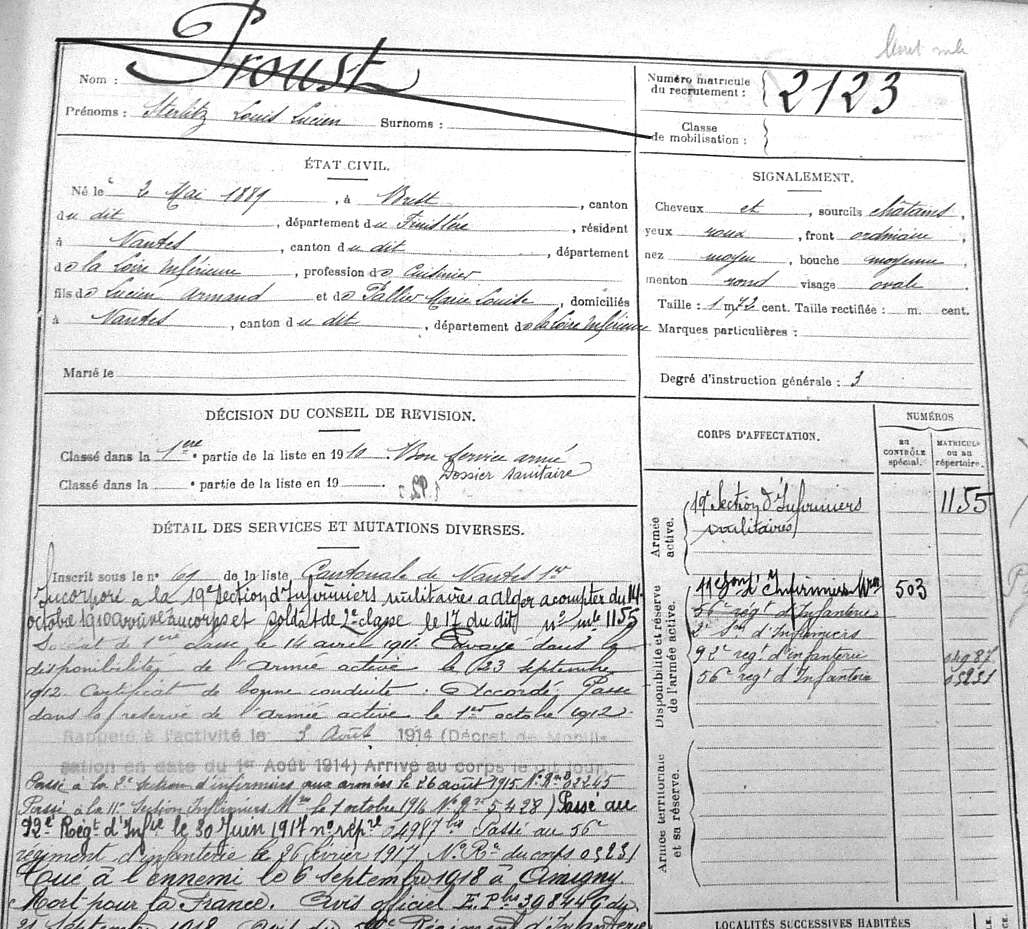 Proust
Nom :
Prénoms : Sterlitz Louis Lucien Surnoms :
Numéro matricule
du recrutement : 2123
Classe
de mobilisation :
ÉTAT CIVIL.
Né le 2 Mai 1889, à Brest, canton
du dit, département du Finistère, résident
à Nantes, canton du dit, département
de la Loire Inférieure, profession de Cuisinier
fils de Lucien Armand et de Pallier Marie Louise, domiciliés
à Nantes, canton du dit, département de la Loire Inférieure
Marié le
SIGNALEMENT.
Cheveux et, sourcils châtains,
yeux roux, front ordinaire,
nez moyen, bouche moyenne
menton rond visage ovale
Taille : 1 m. 72 cent. Taille rectifiée : m. cent.
Marques particulières :
Degré d'instruction générale : 3
DÉCISION DU CONSEIL DE REVISION.
Classé dans la 1ere partie de la liste en 1910 Bon service armé
Dossier sanitaire
Classé dans la partie de la liste en 19
DÉTAIL DES SERVICES ET MUTATIONS DIVERSES.
Inscrit sous le n° 61 de la liste Cantonale de Nantes 1er
Incorporé à la 19e Section d'Infirmiers militaires à Alger à compter du 14
octobre 1910 arrivé au corps et soldat de 2e classe le 17 du dit n° mle 1155
Soldat de 1ere classe le 14 avril 1911. Envoyé dans la
disponibilité de l'armée active le 23 septembre
1912. Certificat de bonne conduite : Accordé. Passe
dans la réserve de l'armée active le 1er octobre 1912.
Rappelé à l'activité le 3 Août 1914 (Décret de Mobili-
sation en date du 1er Août 1914) Arrivé au corps le dit jour.
Passé à la 2e Section d'infirmiers aux armées le 26 août 1915 N° Rre 02245
Passé à la 11e Section Infirmiers Mres le 1 octobre 1916 N° Rre 5428) Passé au
92e Régt d'Infie le 30 Juin 1917 n° répre 04987 bis Passé au 56e
régiment d'infanterie le 26 février 1917 N° Re du corps 03231
Tué à l'ennemi le 6 Septembre 1918 à Amigny.
Mort pour la France. Avis officiel
21 Septembre 1918. Avis du Régiment d'Infanterie
CORPS D'AFFECTATION.
NUMÉROS
au
CONTRÔLE
spécial.
MATRICULE
ou au
répertoire.
Armée
active.
19e Section d'Infirmiers 1155
militaires
Disponibilité et réserve
de l'armée active.
11e Son d'Infirmiers Mres 503
56e régt d'Infanterie
2e Son d'Infirmiers
92e regt d'infanterie
56e regt d'Infanterie 03231
Armée territoriale
et sa réserve.
LOCALITÉS SUCCESSIVES HABITÉES